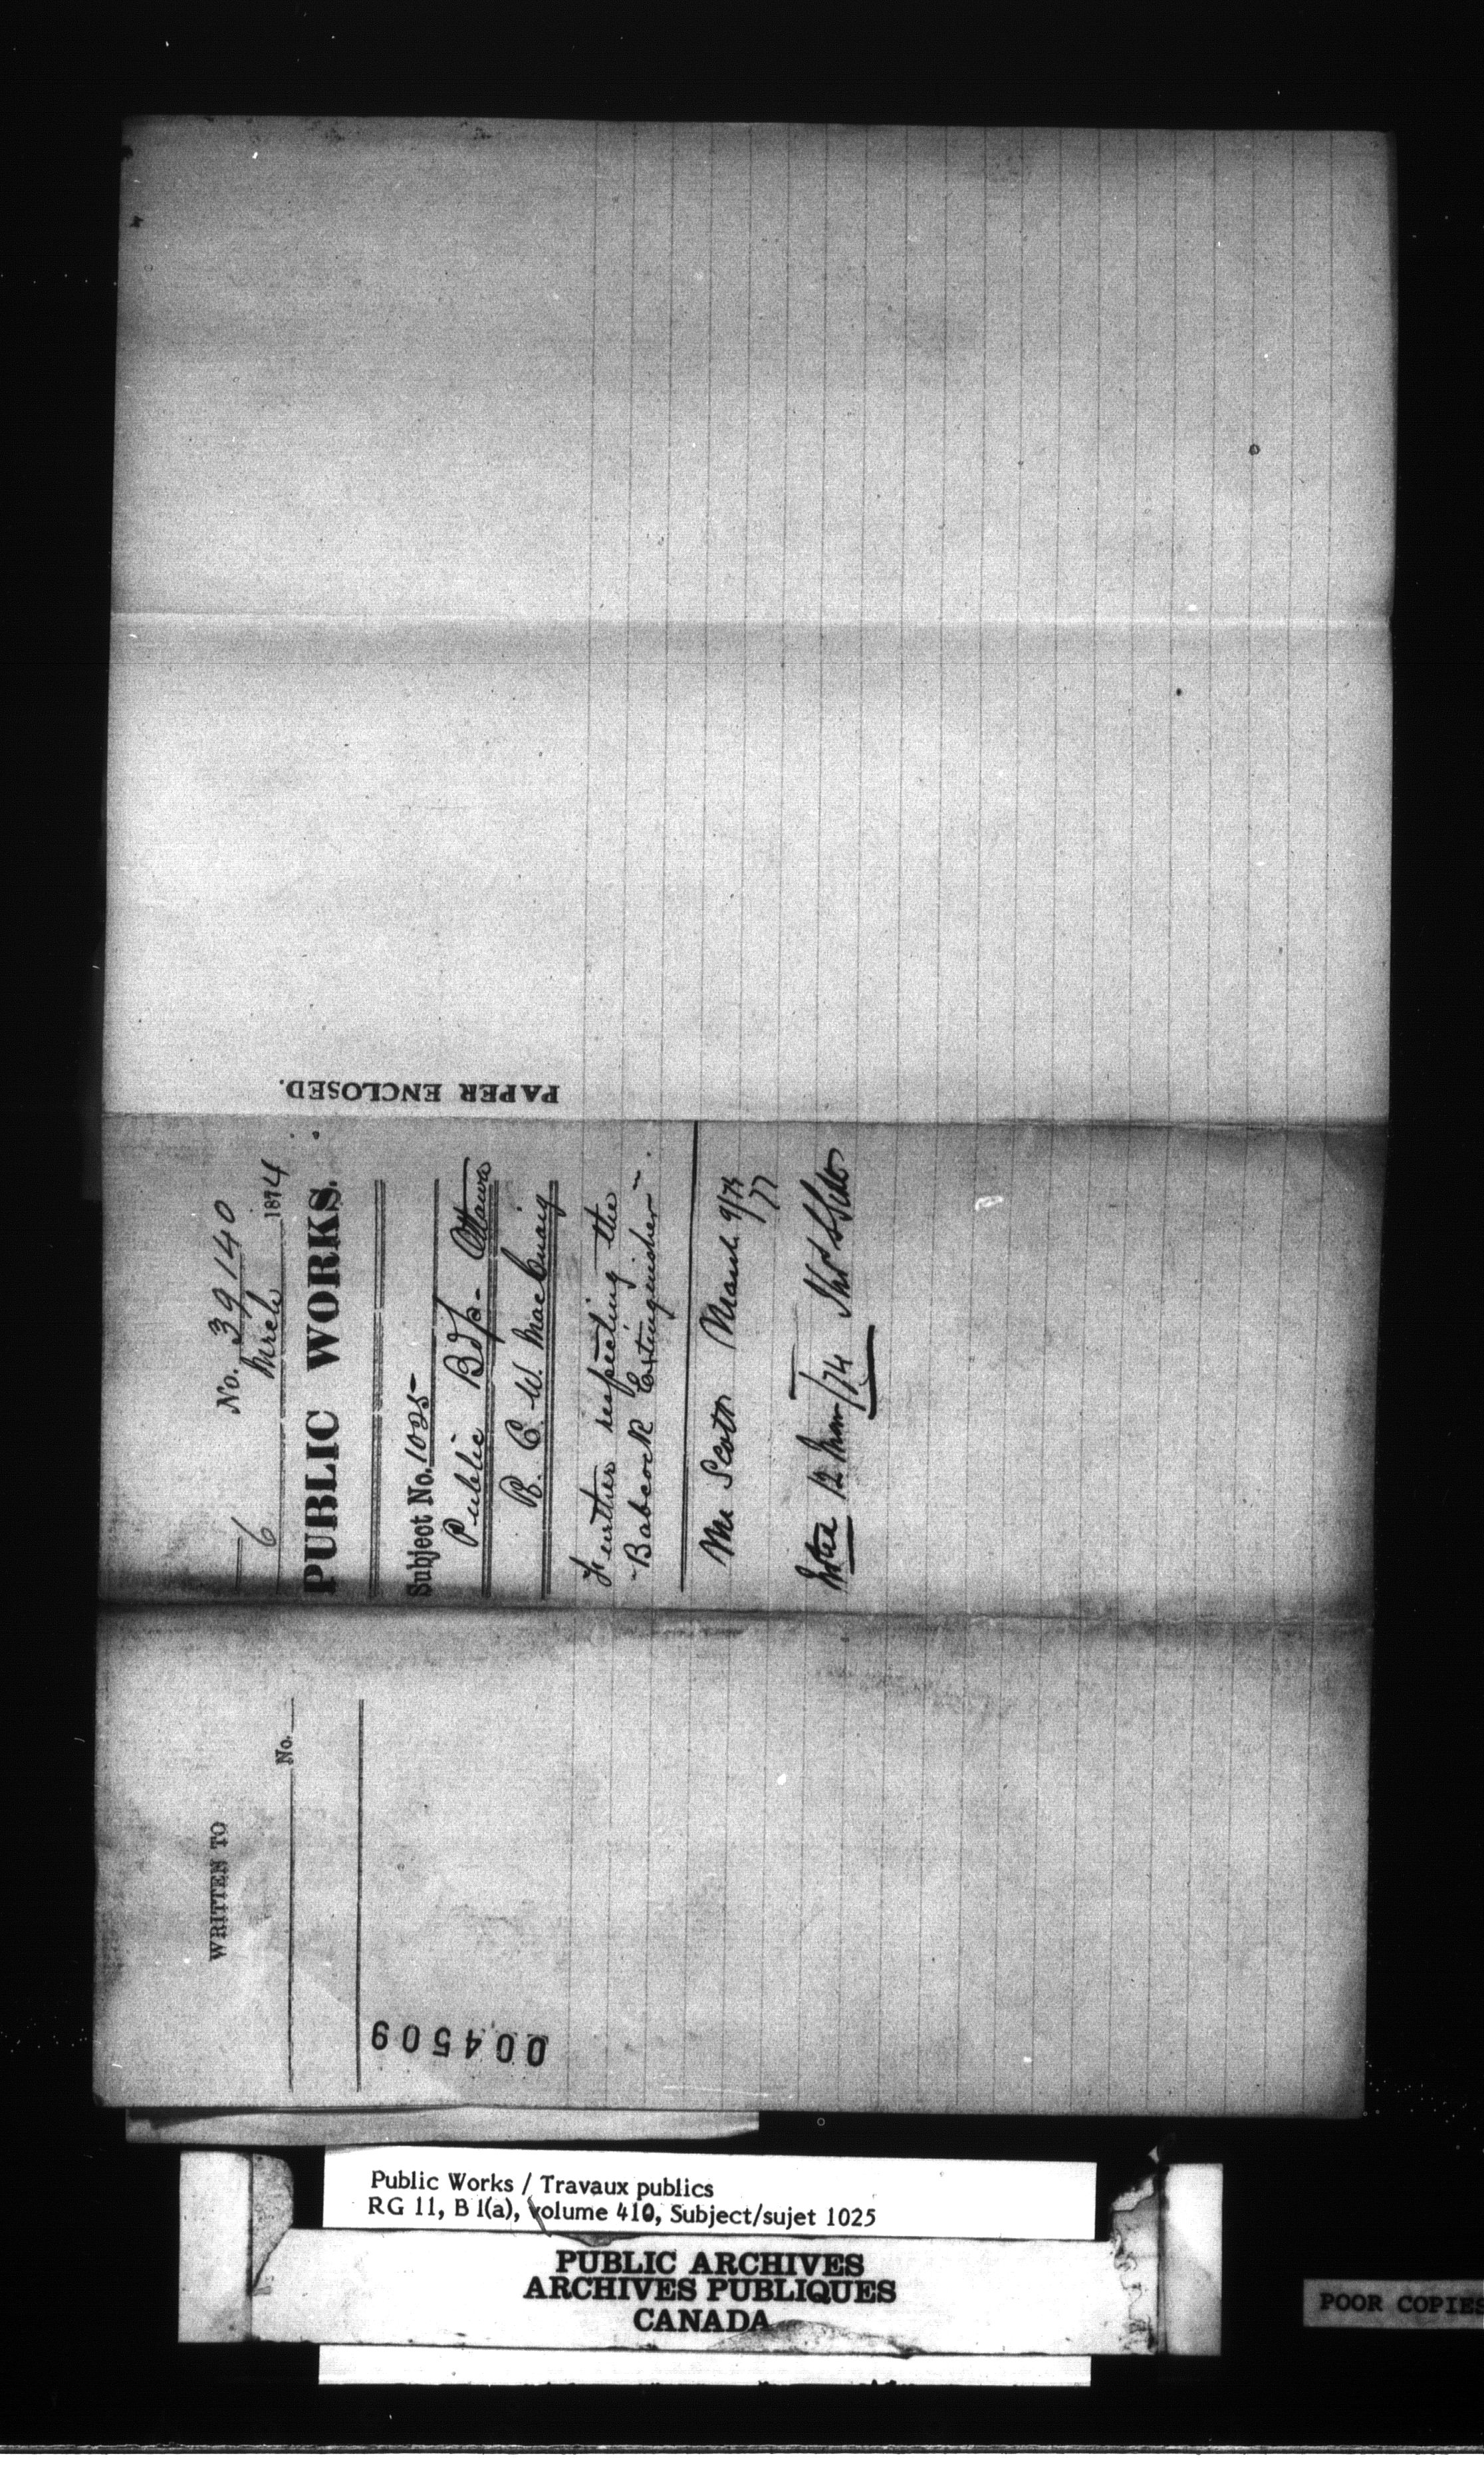 PAPER ENCLOSED.
No. 39140
6 March 1874
PUBLIC WORKS.
Subject No. 1025
Public Bdgs- Ottawa
B. C. W. MacCuaig
Further respecting the
"Babcock Extinguisher".
Mr Scott March 9/74
Noted 12 /74
WRITTEN TO
No.
004509
Public Works / Travaux publics
RG 11, B 1(a), volume 410, Subject/sujet 1025
PUBLIC ARCHIVES
ARCHIVES PUBLIQUES
CANADA
POOR COPIES